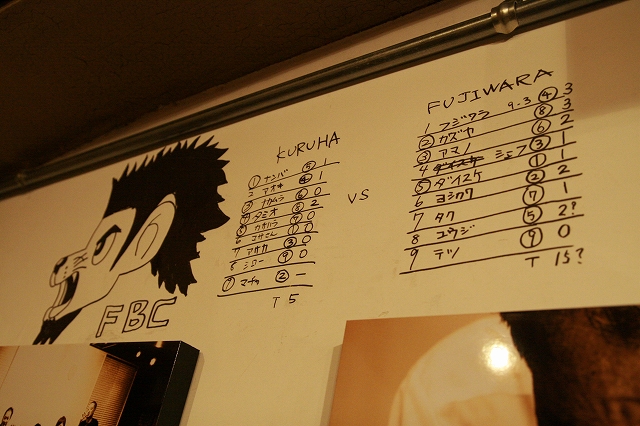 KURUHA
① ナンバ ⑤ 1
2 アオキ ④ 1
③ ナカムラ ⑥ 0
④ タミオ ⑧ 2
⑤ カオハラ ⑦ 0
6 コサさん ① 0
7 アオカ ③ 0
8 シロー ⑨ 0
⑨ マチャ ② —
T 5
VS
FUJIWARA
1 フジワラ 9-3 ④ 3
② カズヤ ⑧ 3
③ アマノ ⑥ 2
4 ダイスケ シェフ ③ 1
⑤ ダイスケ ① 1
6 ヨシカワ ② 2
7 タク ⑦ 1
8 ユウジ ⑤ 2?
9 テツ ⑨ 0
T 15?
FBC